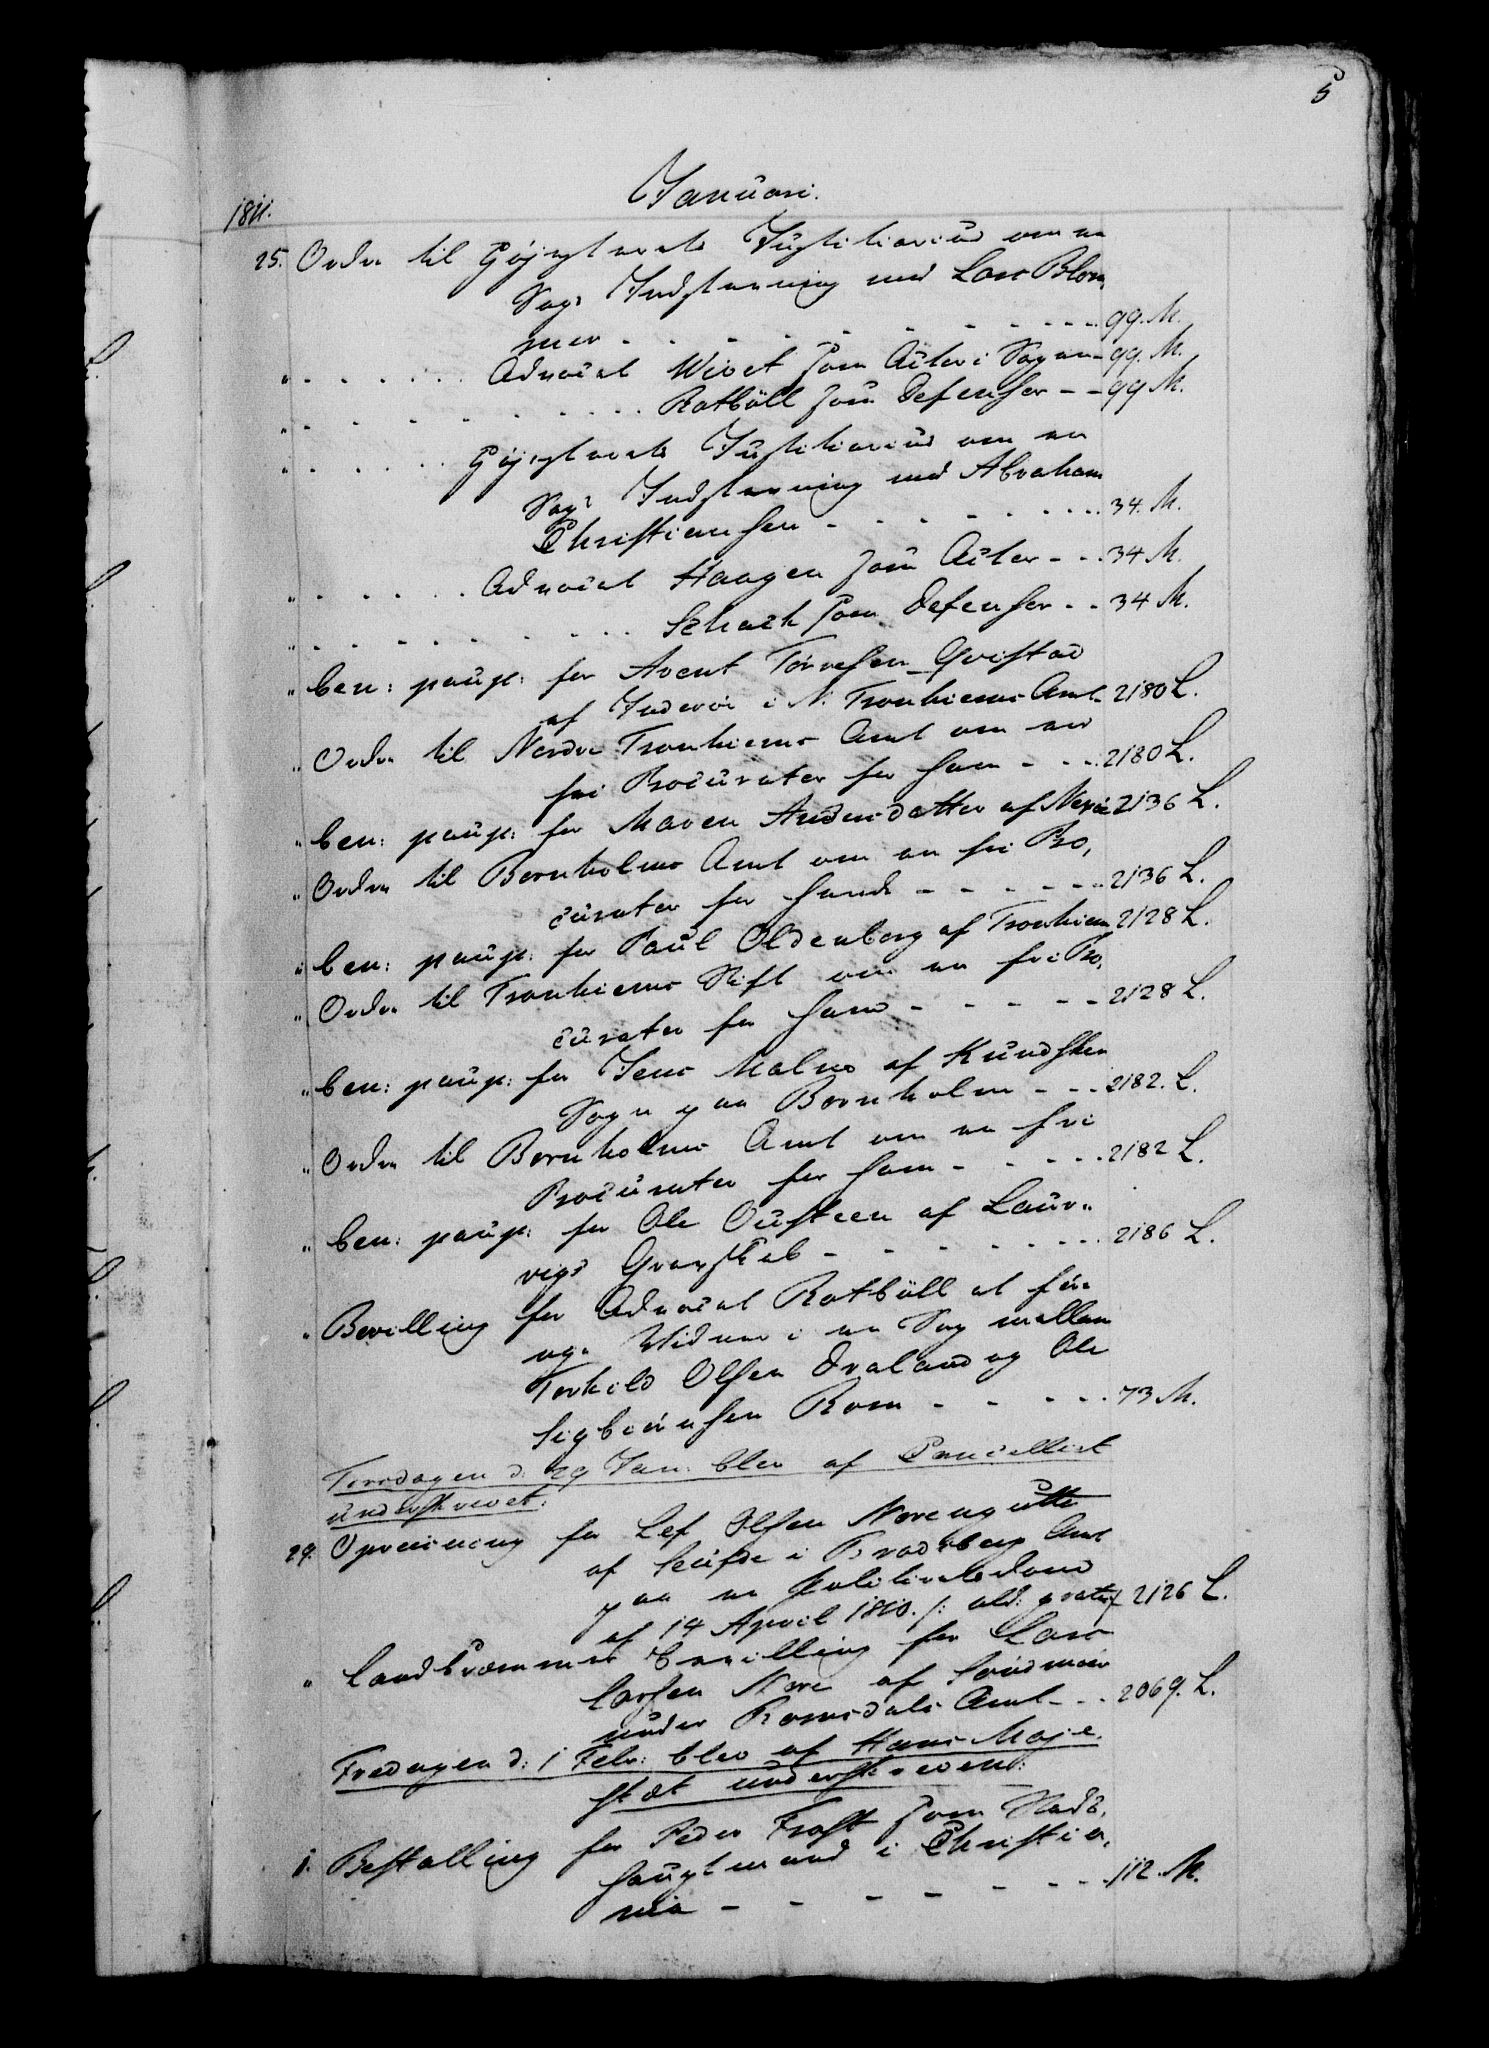 5
Januari.
1811.
25. Ordre til Høiesterets Justitiarius om en
Sags Indstevning med Lars Blom,
mer - - - - - - - - 99. M.
" - - - - Advocat Wivet som Actor i Sagen - 99. M.
" - - - - - - Rotböll som Defensor - - 99 M.
" - - - - Høiesterets Justitiarius om en
Sags Indstevning med Abraham
Christiansen - - - - - - - 34. M.
" - - - - Advocat Haagen som Actor - - 34 M.
" - - - - - - Schack som Defensor - - 34 M.
" ben: paup: for Arent Torresen Qvistad
af Inderöi i N. Tronhiems Amt - 2180 L.
" Ordre til Nordre Tronhiems Amt om en
fri Procurator for ham - - - 2180 L.
" ben: paup: for Maren Andersdatter af Nexöe 2136 L.
" Ordre til Bornholms Amt om en fri Pro,
curator for hende - - - - - - 2136 L.
" ben: paup: for Paul Oldenborg af Tronhiem 2128 L.
" Ordre til Tronhiems Stift om en fri Pro,
curator for ham - - - - - 2128 L.
" ben: paup: for Jens Malno af Knudsker
Sogn paa Bornholm - - - 2182. L.
" Ordre til Bornholms Amt om en fri
Procurator for ham - - - - - 2182 L.
" ben: paup: for Ole Ousteen af Laur"
vigs Grevskab - - - - - - - 2186 L.
" Bevilling for Advocat Rotböll at før
nye Vidner i en Sag mellem
Torkild Olsen Draland og Ole
Sigbiørnsen Rom - - - - - 73 M.
Tirsdagen d: 29 Jan: blev af Cancelliet
underskrevet:
29. Opreisning for Lef Olsen
af i Bradsberg Amt
paa en Politieretsdom
af 14 April 1810. /: ald: gratis/ 2126 L.
" Landkræmmer bevilling for Lars
Larsen Nere af Søndmør
under Romsdals Amt - - - 2069. L.
Fredagen d: 1 Febr: blev af Hans Maje,
stæt underskreven:
1. Bestalling for Peder Frost som Stads,
hauptmand i Christia,
nia - - - - - - - 112. M.